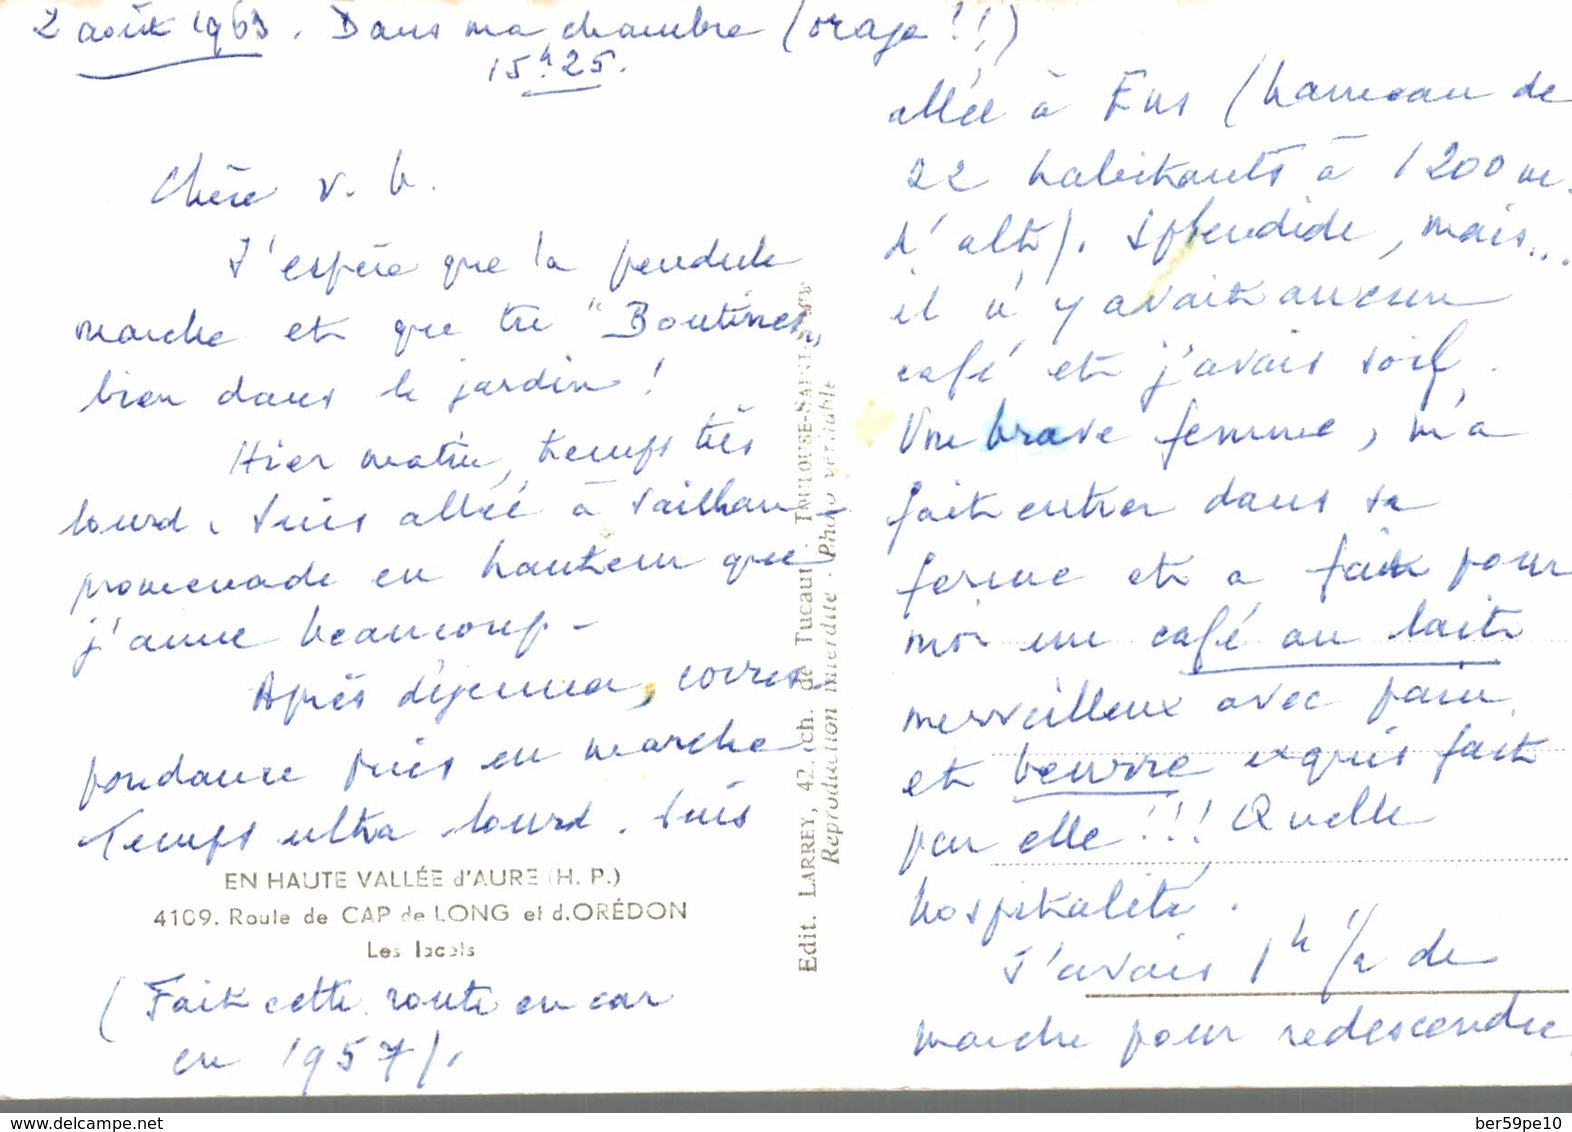 2 août 1963. Dans ma chambre (orage !!)
15h 25.
Chère v. h.
J'espère que la pendule
marche et que tu "Boutines"
bien dans le jardin !
Hier matin, temps très
lourd. Suis allée à Sailhan -
promenade en hauteur que
j'aime beaucoup -
Après déjeuner, corres-
pondance puis en marche
Temps ultra lourd. Suis
EN HAUTE VALLÉE d'AURE (H. P.)
4109. Route de CAP de LONG et d.ORÉDON
Les lacets
(Fait cette route en car
en 1957).
Edit. LARREY, 42. ch. de Tucaut - TOULOUSE-SAINT-
Reproduction interdite - Photo véritable
allée à Ens (hameau de
22 habitants à 1200 m.
d'alt). Splendide, mais...
il n'y avait aucun
café et j'avais soif.
Une brave femme, m'a
fait entrer dans sa
ferme et a fait pour
moi un café au lait
merveilleux avec pain
et beurre exquis fait
par elle !!! Quelle
hospitalité.
J'avais 1h 1/2 de
marche pour redescendre
www.delcampe.net
ber59pe10